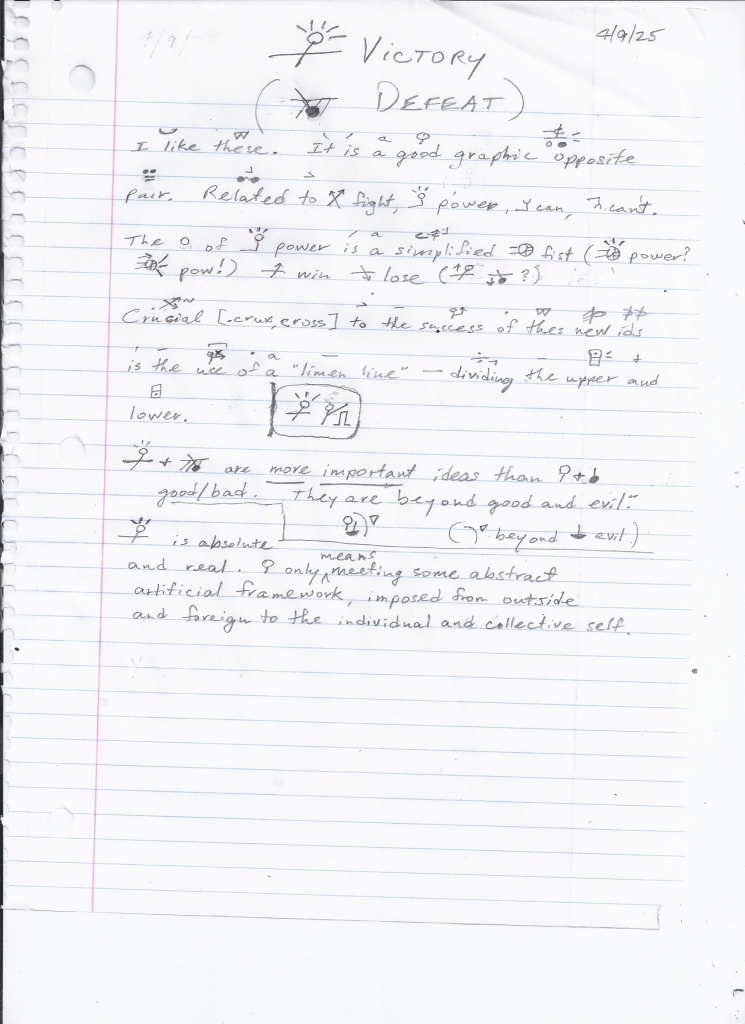 4/9/25
VICTORY
( DEFEAT)
I like these. It is a good graphic opposite
pair. Related to fight, power, can, can't.
The O of power is a simplified fist ( power?
pow!) win lose ( ?)
Crucial [-crux, cross] to the success of thes new ids
is the use of a "limen line" — dividing the upper and
lower.
+ are more important ideas than +
good/bad. They are "beyond good and evil."
( beyond evil.)
is absolute
means
and real. only ^ meeting some abstract
artificial framework, imposed from outside
and foreign to the individual and collective self.